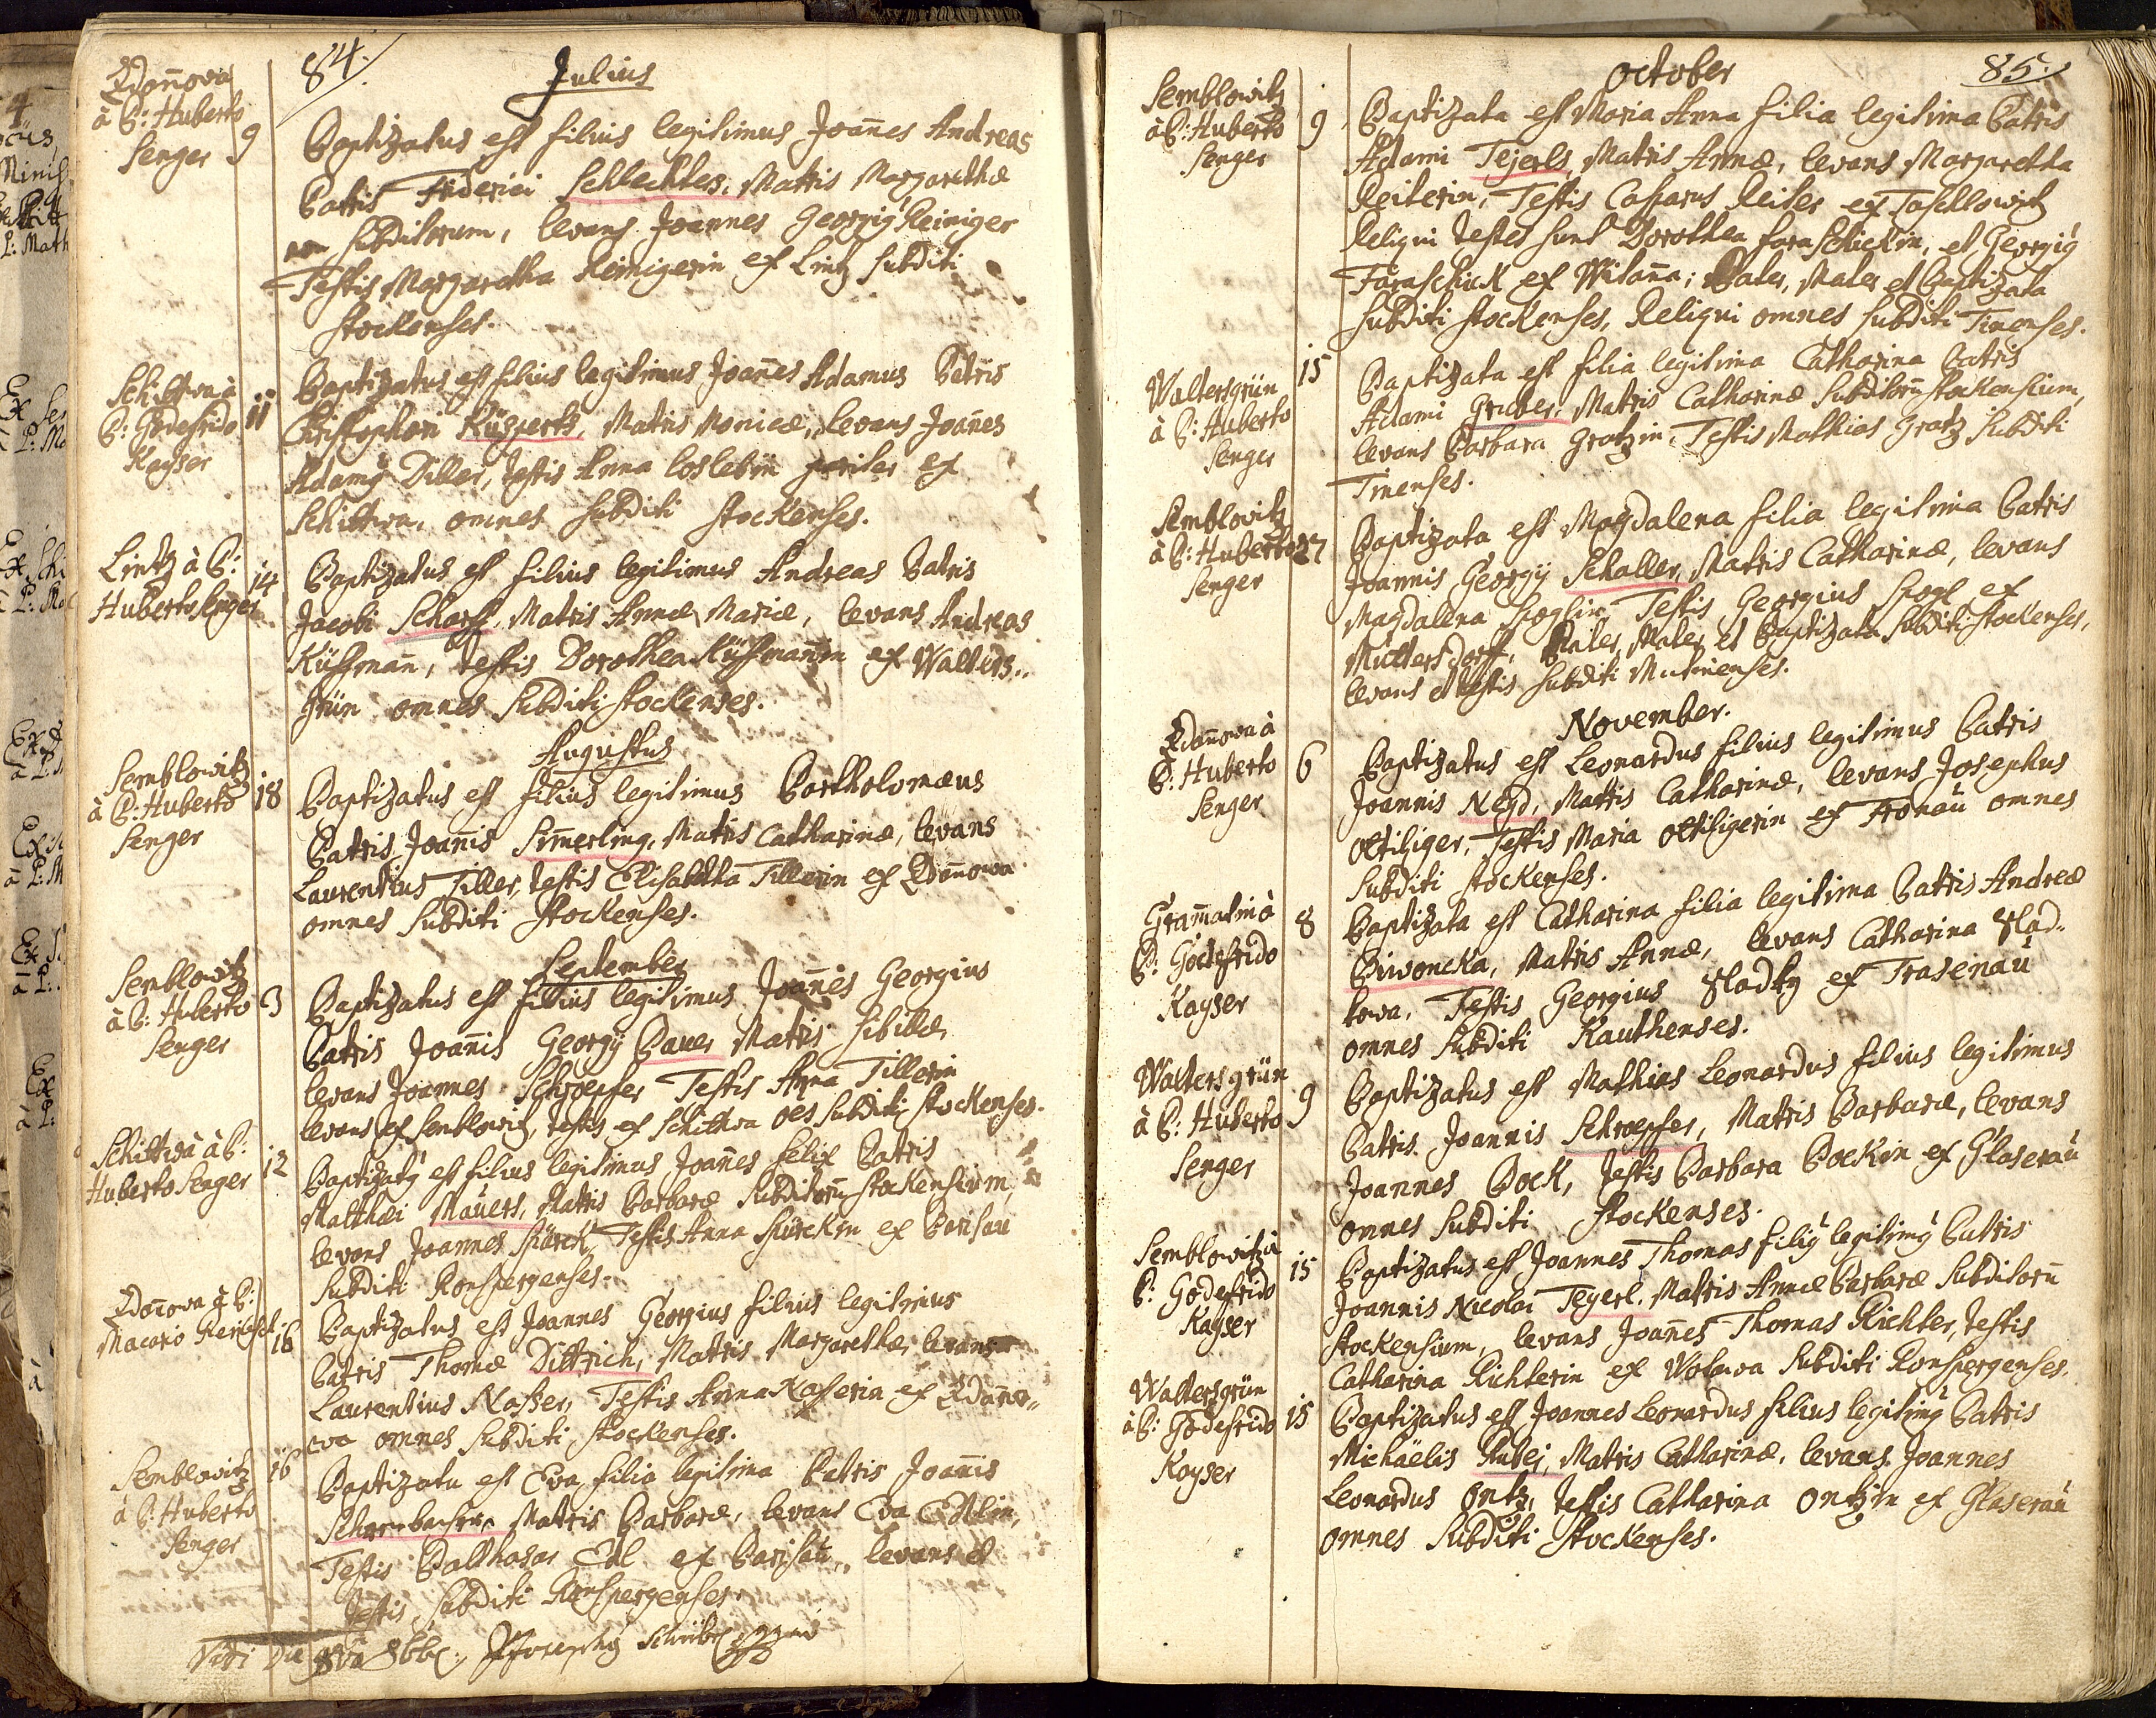 84.
Julius
Zdan̄ova
à P: Huberto
Senger
9
Baptizatus est filius legitimus Joan̄es Andreas
Patris Friderici Schlechter, Matris Margarethæ
subditorum, levans Joannes Georgiꝰ Reiniger
Testis Margaretha Reinigerin ex Lintz subditi
stockenses.
Schittwa à
P: Godefrido
Kayser
11
Baptizatus est filius legitimus Joan̄es Adamus Patris
Christophori Küspertz, Matris Monicæ, levans Joan̄es
Adamꝰ Diller, testis Anna Loslebin pariter ex
Schittwa, omnes subditi stockenses.
Lintz à P:
Huberto Senger
14
Baptizatus est filius legitimus Andreas Patris
Jacobi Scharff, Matris Annæ Mariæ, levans Andreas
Küssman̄, testis Dorothea Küssman̄in ex Walters..
grün omnes subditi stockenses.
Augustus
Semblowitz
à P: Huberto
Senger
18
Baptizatus est filius legitimus Bartholomæus
Patris Joan̄is Sim̄erling, Matris Catharinæ, levans
Laurentius Tiller, testis Elisabetha Tillerin ex Zdan̄owa
omnes subditi stockenses.
September
Semblowitz
à P: Huberto
Senger
3
Baptizatus est filius legitimus Joan̄es Georgius
Patris Joan̄is Georgÿ Bauer Matris Sibillæ,
levans Joannes Schroepfer Testis Anna Tillerin
levans ex Semblowitz, testis ex Schittwa oēs subditi stockenses.
Schittwa à P:
Huberto Senger
12
Baptizatꝰ est filius legitimus Joan̄es Felix Patris
Matthæi Mauers, Matris Barbaræ subditorū stockensium,
levans Joannes Stürck, Testis Anna Stürckin ex Parisau
subditi Ronspergenses.
Zdan̄owa à P:
Macario
16
Baptizatus est Joannes Georgius filius legitimus
Patris Thomæ Dittrich, Matris Margarethæ, levans
Laurentius Nasser, Testis Anna Nasserin ex Zdan̄o..
wa omnes subditi stockenses.
Semblowitz
à P: Huberto
Senger
16
Baptizata est Eva filia legitima Patris Joan̄is
Matris Barbaræ, levans Eva Edlin,
Testis Balthasar Edl ex Parisau, levans et
testis subditi Ronspergenses.
Vidi die 8bb
85.
October
Semblowitz
à P: Huberto
Senger
9
Baptizata est Maria Anna filia legitima Patris
Adami Tejerls, Matris Annæ, levans Margaretha
Reiterin, Testis Casparus Reiter ex Taschlowitz
Reliqui testes sunt Dorothea Faraschückin, et Georgiꝰ
Faraschiuk ex Wilan̄a; Pater, Mater et Baptizata
subditi stockenses, Reliqui omnes subditi Tinenses.
Waltersgrün
à P: Huberto
Senger
15
Baptizata est filia legitima Catharina Patris
Adami Gruber, Matris Catharinæ subditorū stockensium,
levans Barbara Gratzin, Testis Mathias Gratz subditi
Tinenses.
Semblowitz
à P: Huberto
Senger
27
Baptizata est Magdalena filia legitima Patris
Joannis Georgÿ Schaller, Matris Catharinæ, levans
Magdalena Poglin Testis Georgius Pogl ex
Muttersdorff, Pater, Mater et Baptizata subditi stockenses,
levans et testis subditi Mutinenses.
November.
Zdan̄owa à
P: Huberto
Senger
6
Baptizatus est Leonardus filius legitimus Patris
Joannis Neyd, Matris Catharinæ, levans Josephus
Ottiliger, Testis Maria Ottiligerin ex Fronau omnes
subditi stockenses.
Gram̄atin à
P: Godefrido
Kayser
8
Baptizata est Catharina filia legitima Patris Andreæ
Piwoncka, Matris Annæ, levans Catharina Slad..
kowa, Testis Georgius Sladky ex Trasenau
omnes subditi Kauthenses.
Waltersgrün
à P: Huberto
Senger
9
Baptizatus est Mathias Leonardus filius legitimus
Patris Joannis Schroepfer, Matris Barbaræ, levans
Joannes Bock, testis Barbara Bockin ex Glaserau
omnes subditi stockenses.
Semblowitz à
P: Godefrido
Kayser
15
Baptizatus est Joannes Thomas filiꝰ legitimꝰ Patris
Joannis Nicolai Teyerl, Matris Annæ Barbaræ subditorū
stockensium, levans Joan̄es Thomas Richter, testis
Catharina Richterin ex Wolowa subditi Ronspergenses.
Waltersgrün
à P: Godefrido
Kayser
15
Baptizatus est Joannes Leonardus filius legitimꝰ Patris
Michäelis Huber, Matris Catharinæ, levans Joannes
Leonardus Ontz, testis Catharina Ontzin ex Glaserau
omnes subditi stockenses.